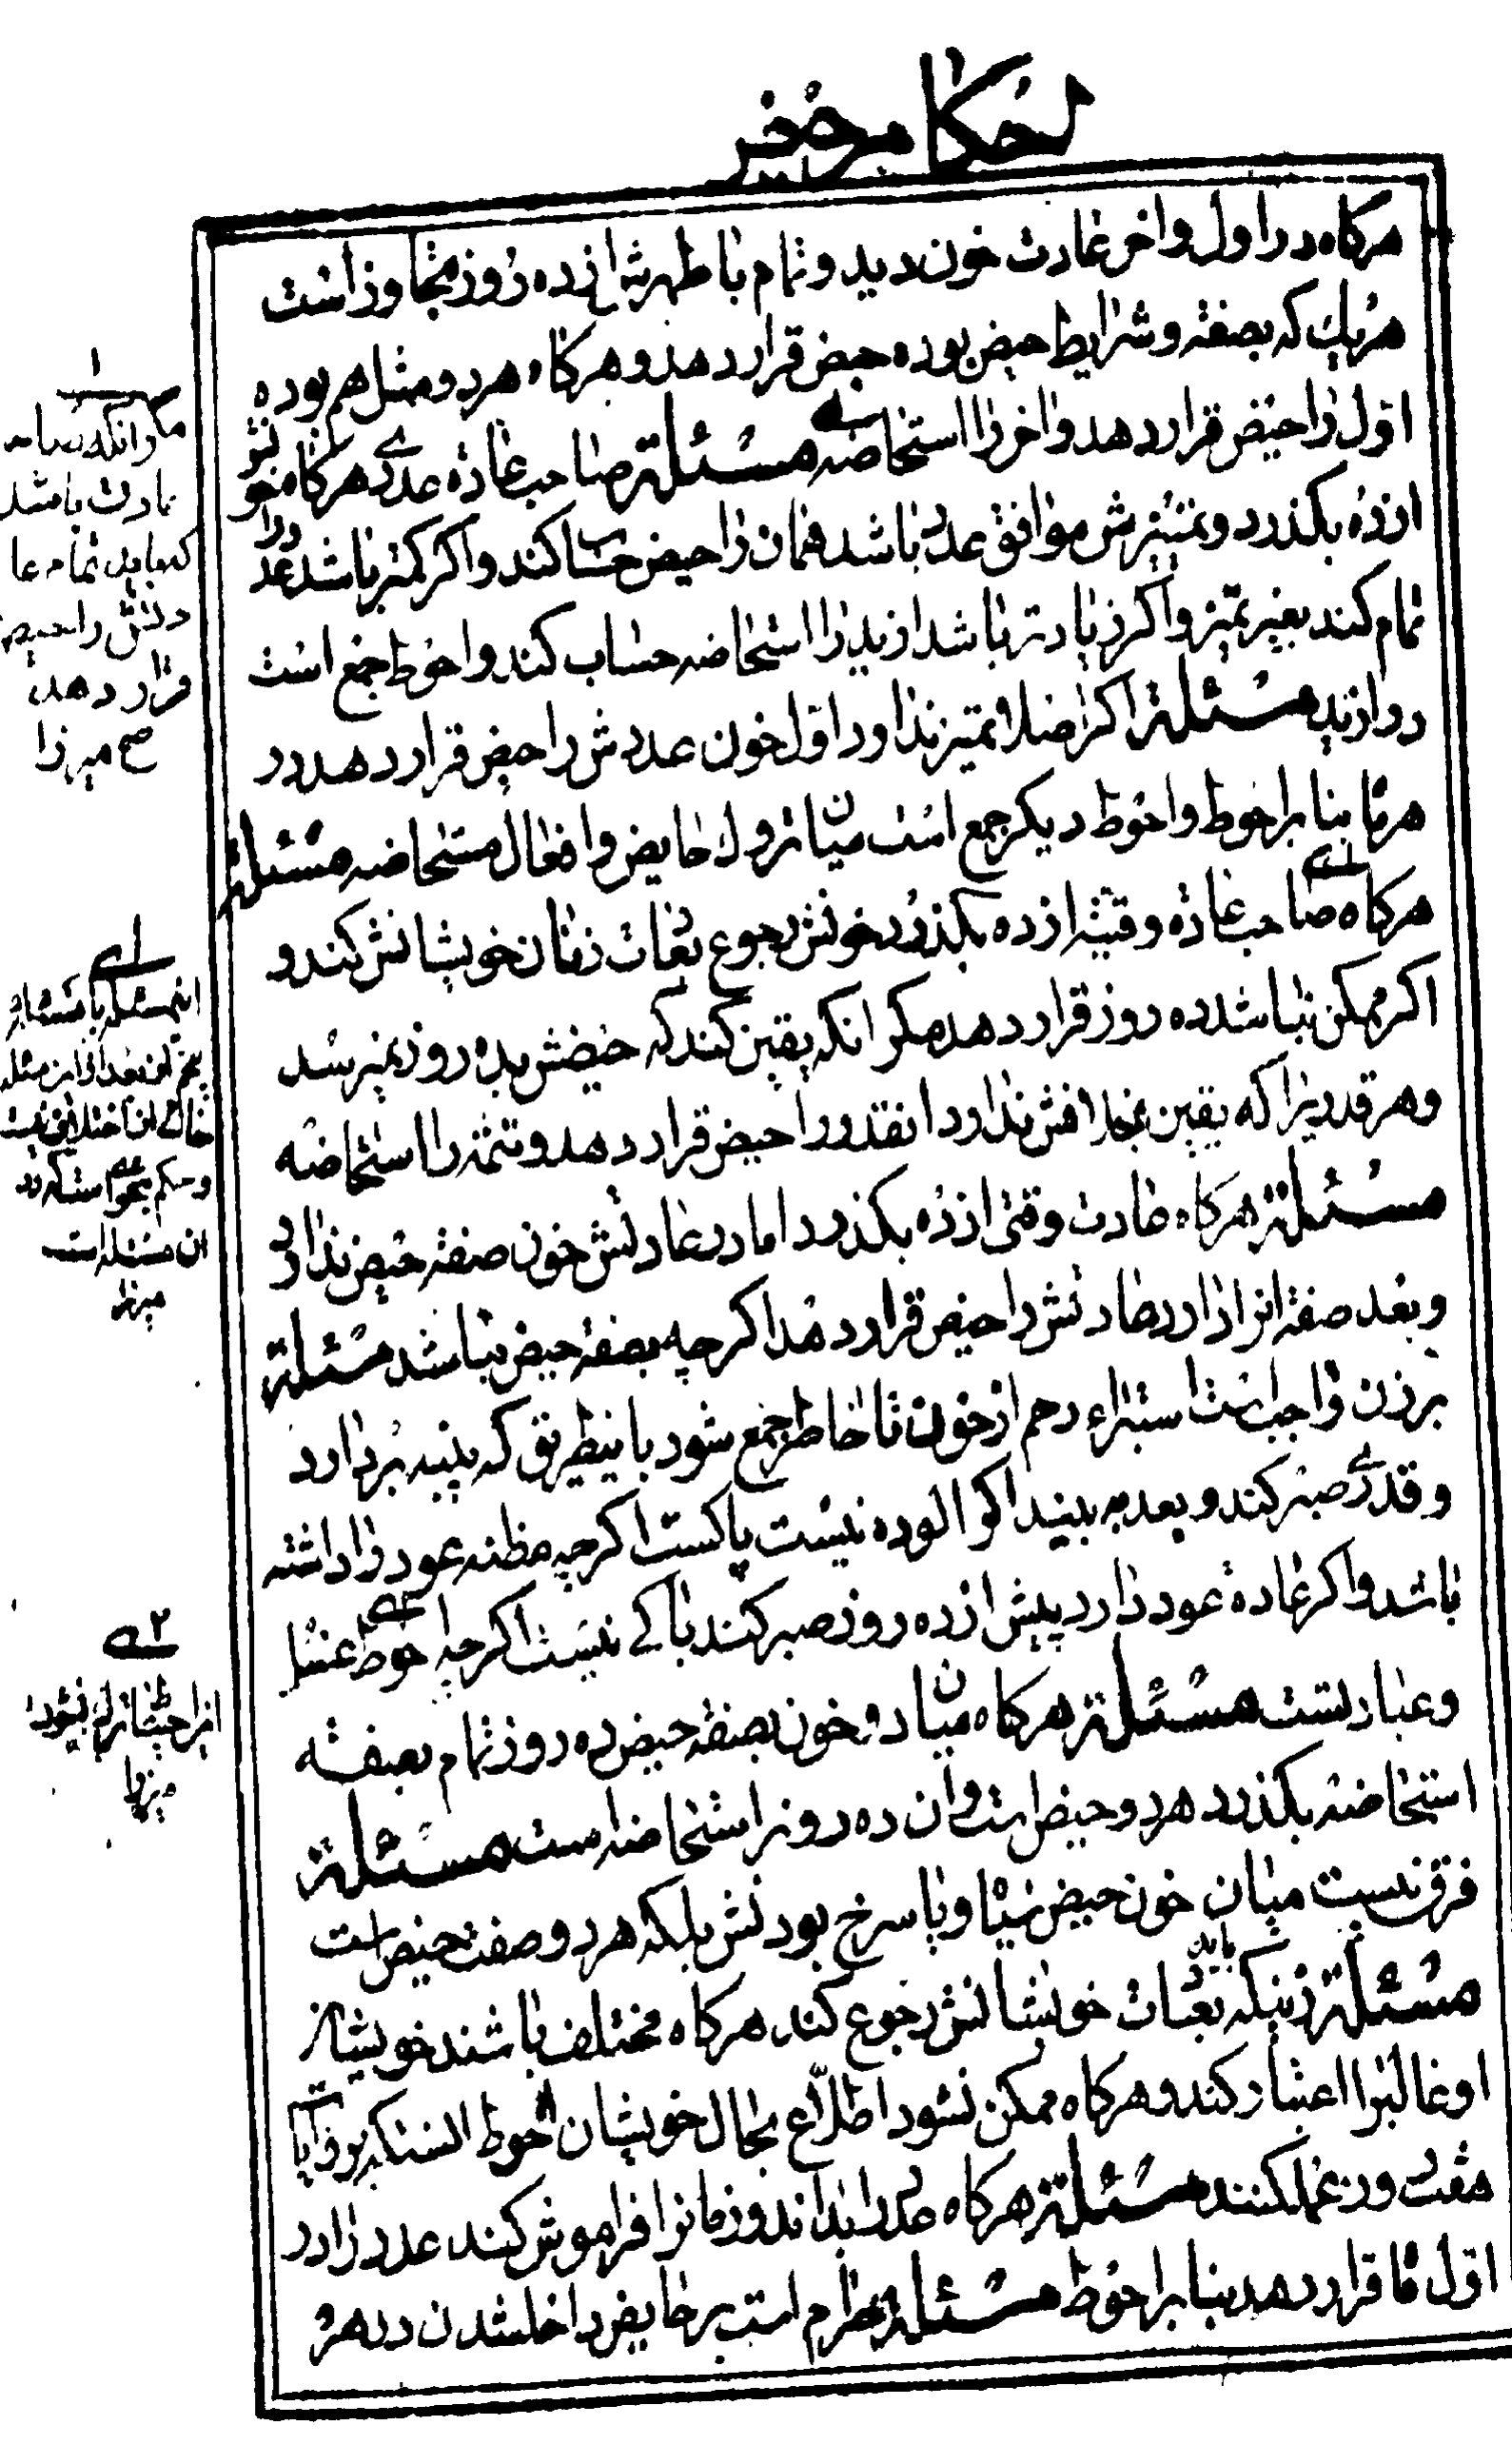 احکام حیض
هرکاه در اول و اخر عادت خون دید و تمام با طهرش از ده روز متجاوز است
هریك که بصفة و شرایط حیض بوده حیض قرار دهد و هرکاه هر دو مثل هم بوده
اوّل را حیض قرار دهد و اخر را استحاضه مسئلة صاحب عادة عددی هرکاه خونش
از ده بکذرد و تمییزش موافق عدد باشد همان را حیض حساب کند و اکر کمتر باشد عدد را
تمام کند بغیر تمیز و اکر زیادتر باشد ازید را استحاضه حساب کند و احوط جمع است
در ازید مسئلة اکر اصلا تمیز ندارد اوّل خون عددش را حیض قرار دهد در
هر ماه بنا بر احوط و احوط دیکر جمع است میان تروك حایض و افعال مستحاضه مسئلة
هرکاه صاحب عادة وقتیه از ده بکذرد خونش رجوع بعادت زنان خویشانش کند و
اکر ممکن نباشد ده روز قرار دهد مکر انکه یقین کند که حیضش بده روز نمیرسد
و هر قدریرا که یقین بخلافش ندارد انقدر را حیض قرار دهد و تتمه را استحاضه
مسئلة هرکاه عادت وقتی از ده بکذرد اما در عادتش خون صفة حیض ندارد
و بعد صفة انرا دارد عادتش را حیض قرار دهد اکرچه بصفة حیض نباشد مسئلة
بر زن واجب است استبراء رحم از خون تا خاطر جمع شود باینطریق که پنبه بردارد
و قدری صبر کند و بعد به بیند اکر الوده نیست پاکست اکرچه مظنه عود را داشته
باشد و اکر عادة عود دارد پیش از ده روز صبر کند باکی نیست اکرچه احوط غسل
و عبادتست مسئلة هرکاه میان دو خون بصفة حیض ده روز تمام بصفة
استحاضه بکذرد هر دو حیض است و ان ده روز استحاضه است مسئلة
فرق نیست میان خون حیض سیاه و یا سرخ بودنش بلکه هر دو صفت حیض است
مسئلة زنیکه باید بعادت خویشانش رجوع کند هرکاه مختلف باشند خویشان
او غالبرا اعتبار کند و هرکاه ممکن نشود اطلاع بحال خویشان احوط انستکه
هفت روز عمل کنند مسئلة هرکاه عدد را بداند و زمانرا فراموش کند عدد را در
اوّل ماه قرار دهد بنا بر احوط مسئلة حرام است بر حایض داخلشدن در هر
مکر انکه
عادت باشد
که باید تمام عا
دتش را حیض
قرار دهد
صح میرزا
اینمسئله با مسئله
پنجم که بعد از این مسئله
خالی از اختلاف نیست
و حکم
ان مسئله است
میرزا
میرزا